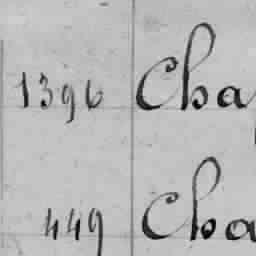 1396 Cha
449 Cha